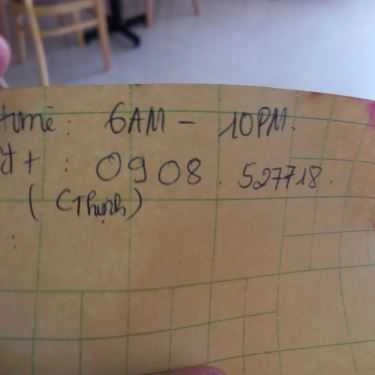 time: 6AM - 10PM.
đt : 0908.527718.
(Thịnh)
: